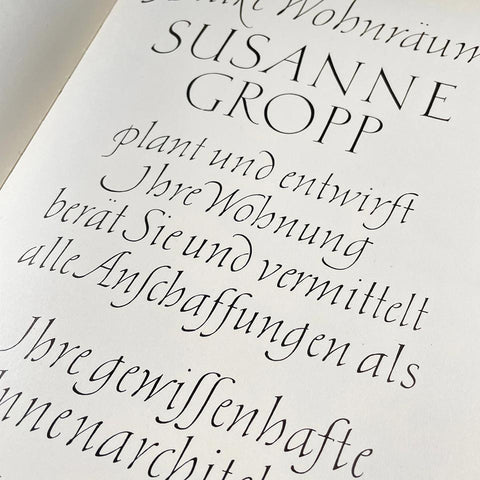 Wohnräum
SUSANNE
GROPP
plant und entwirft
Ihre Wohnung
berät Sie und vermittelt
alle Anſchaffungen als
Ihre gewiſſenhafte
Innenarchitek